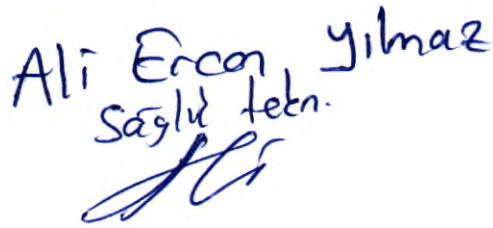 Ali Ercan Yılmaz
Sağlık tekn.
Ali